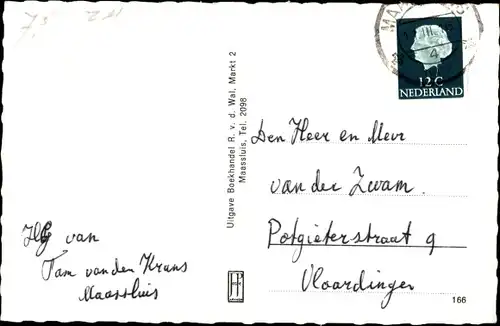 12 C
NEDERLAND
Uitgave Boekhandel R. v. d. Wal, Markt 2
Maassluis, Tel. 2098
Den Heer en Mevr
van der Zwam.
Potgieterstraat 9
Vlaardingen
van
Fam van den
Maassluis
166